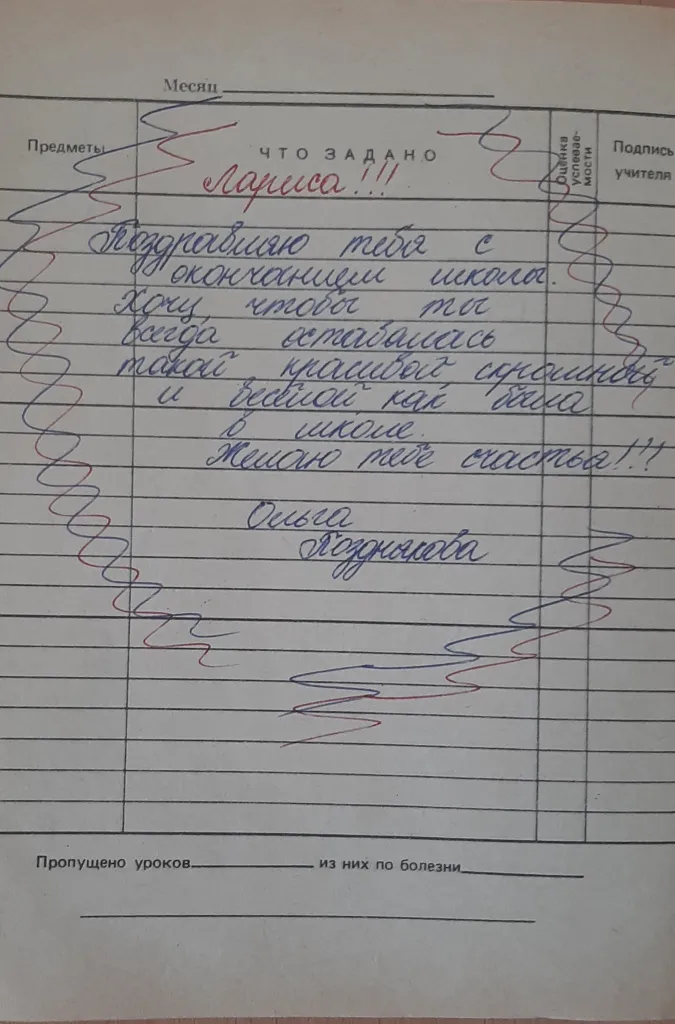 Месяц
Предметы
ЧТО ЗАДАНО
Оценка успеваемости
Подпись учителя
Лариса!!!
Поздравляю тебя с
окончанием школы.
Хочу чтобы ты
всегда оставалась
такой красивой скромной
и весёлой как была
в школе.
Желаю тебе счастья!!!
Ольга
Позднякова
Пропущено уроков из них по болезни